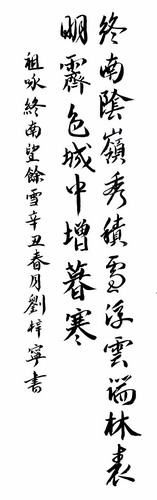 終南陰嶺秀積雪浮雲端林表
明霽色城中增暮寒
祖咏終南望餘雪辛丑春月劉梓寧書